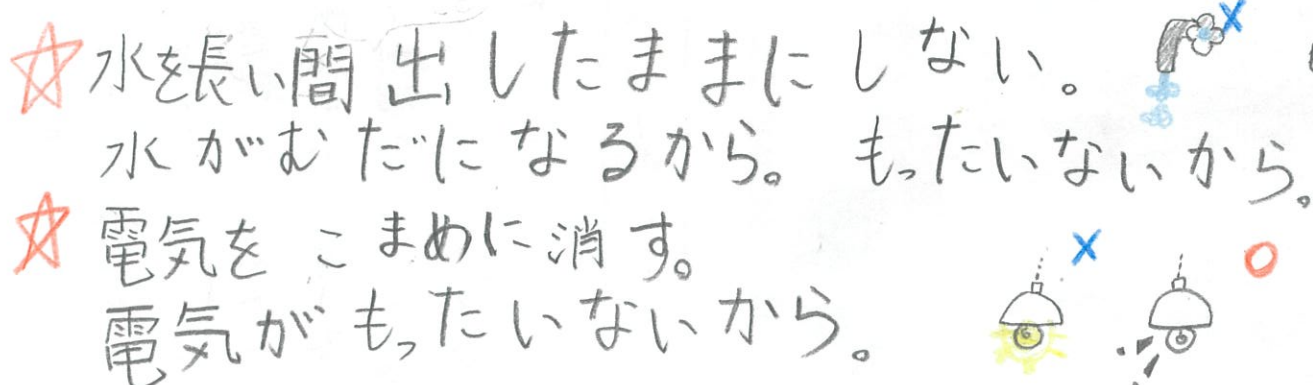 ☆水を長い間出したままにしない。
水がむだになるから。もったいないから。
☆電気をこまめに消す。
電気がもったいないから。